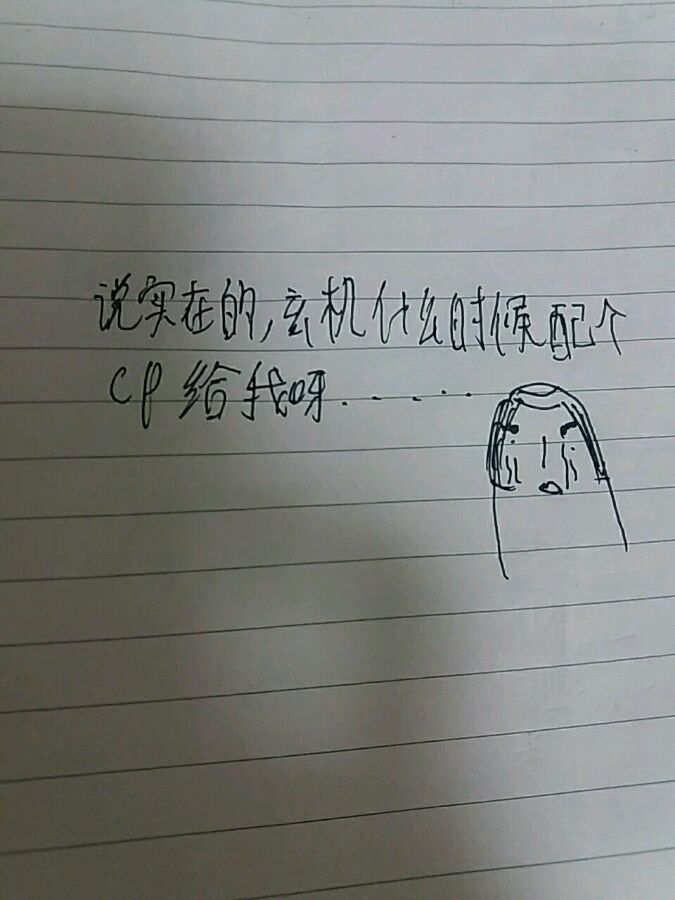 说实在的,玄机什么时候配个
CP给我呀......